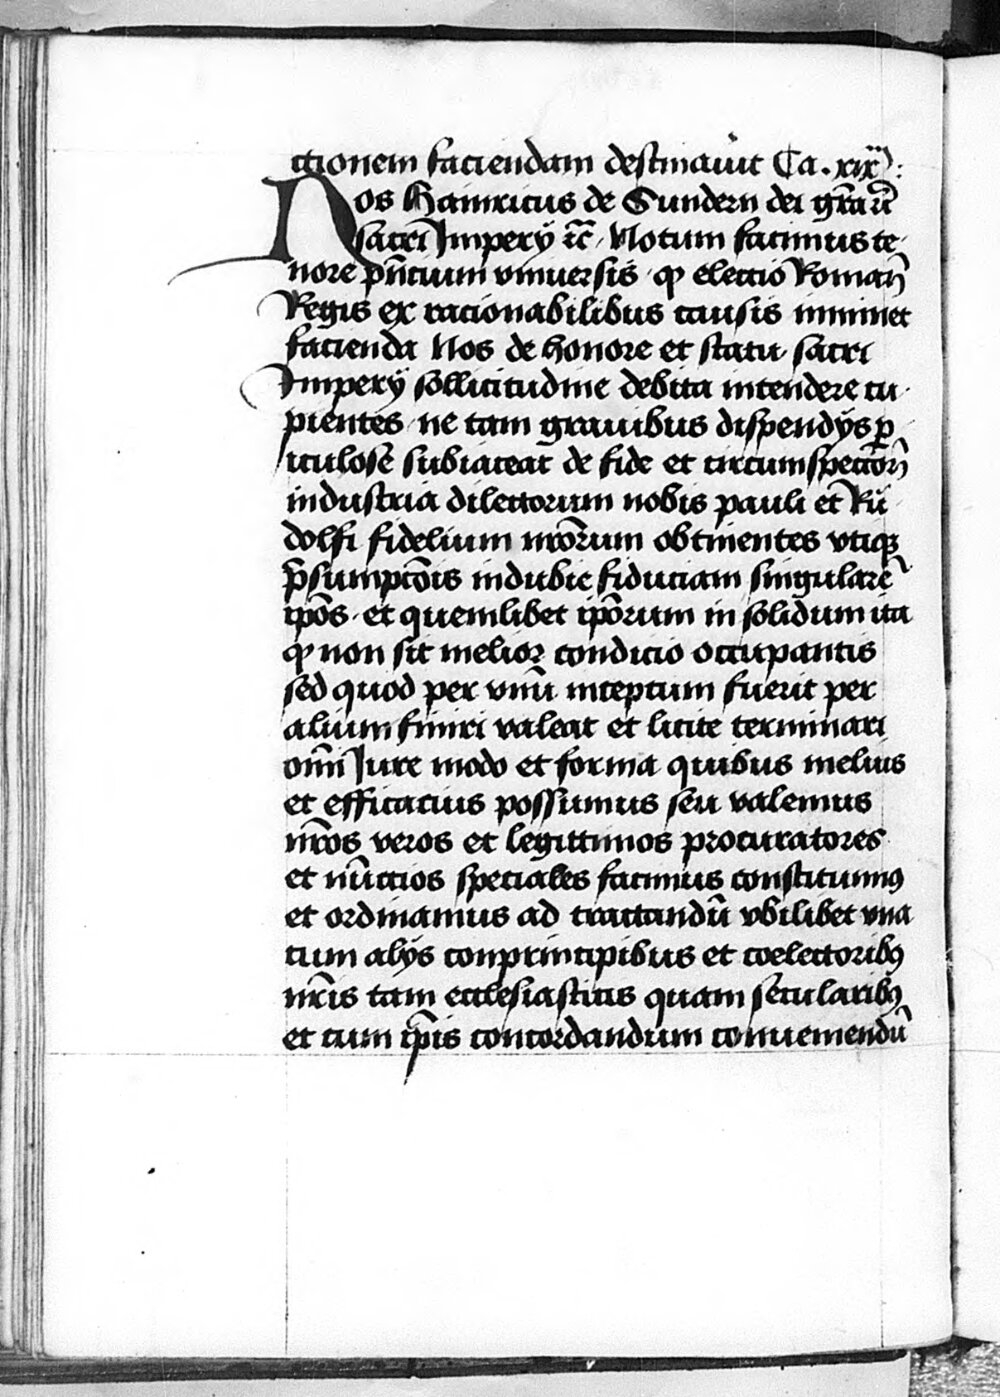 ctionem faciendam destinauit Ca. xix:
Nos Hainricus de Sundern dei grā ꝛc̄
sacri Impery ꝛc̄. Notum facimus te
nore pn̄cium vniuersis ꝙ electio Roman̄
Regis ex racionabilibus causis iminet
facienda Nos de honore et statu sacri
Impery sollicitudine debita intendere cu
pientes ne tam grauibus dispendys ꝑ
iculose subiaceat de fide et circumspection̄
industria dilectorum nobis pauli et Ru
dolfi fidelium nr̄orum obtinentes vtiqꝫ
p̄sumpcōis indubie fiduciam singularē
ip̄os et quemlibet ip̄orum in solidum ita
ꝙ non sit melior condicio occupantis
sed quod per vnū inceptum fuerit per
alium finiri valeat et licite terminari
om̄i Iure modo et forma quibus melius
et efficacius possumus seu valemus
nr̄os veros et legittimos procuratores
et nūccios speciales facimus constituimꝰ
et ordinamus ad tractandū vbilibet vna
cum alys conprincipibus et coelectoribꝰ
nr̄is tam ecclesiasticis quam secularibꝰ
et cum ip̄is concordandum conueniendū